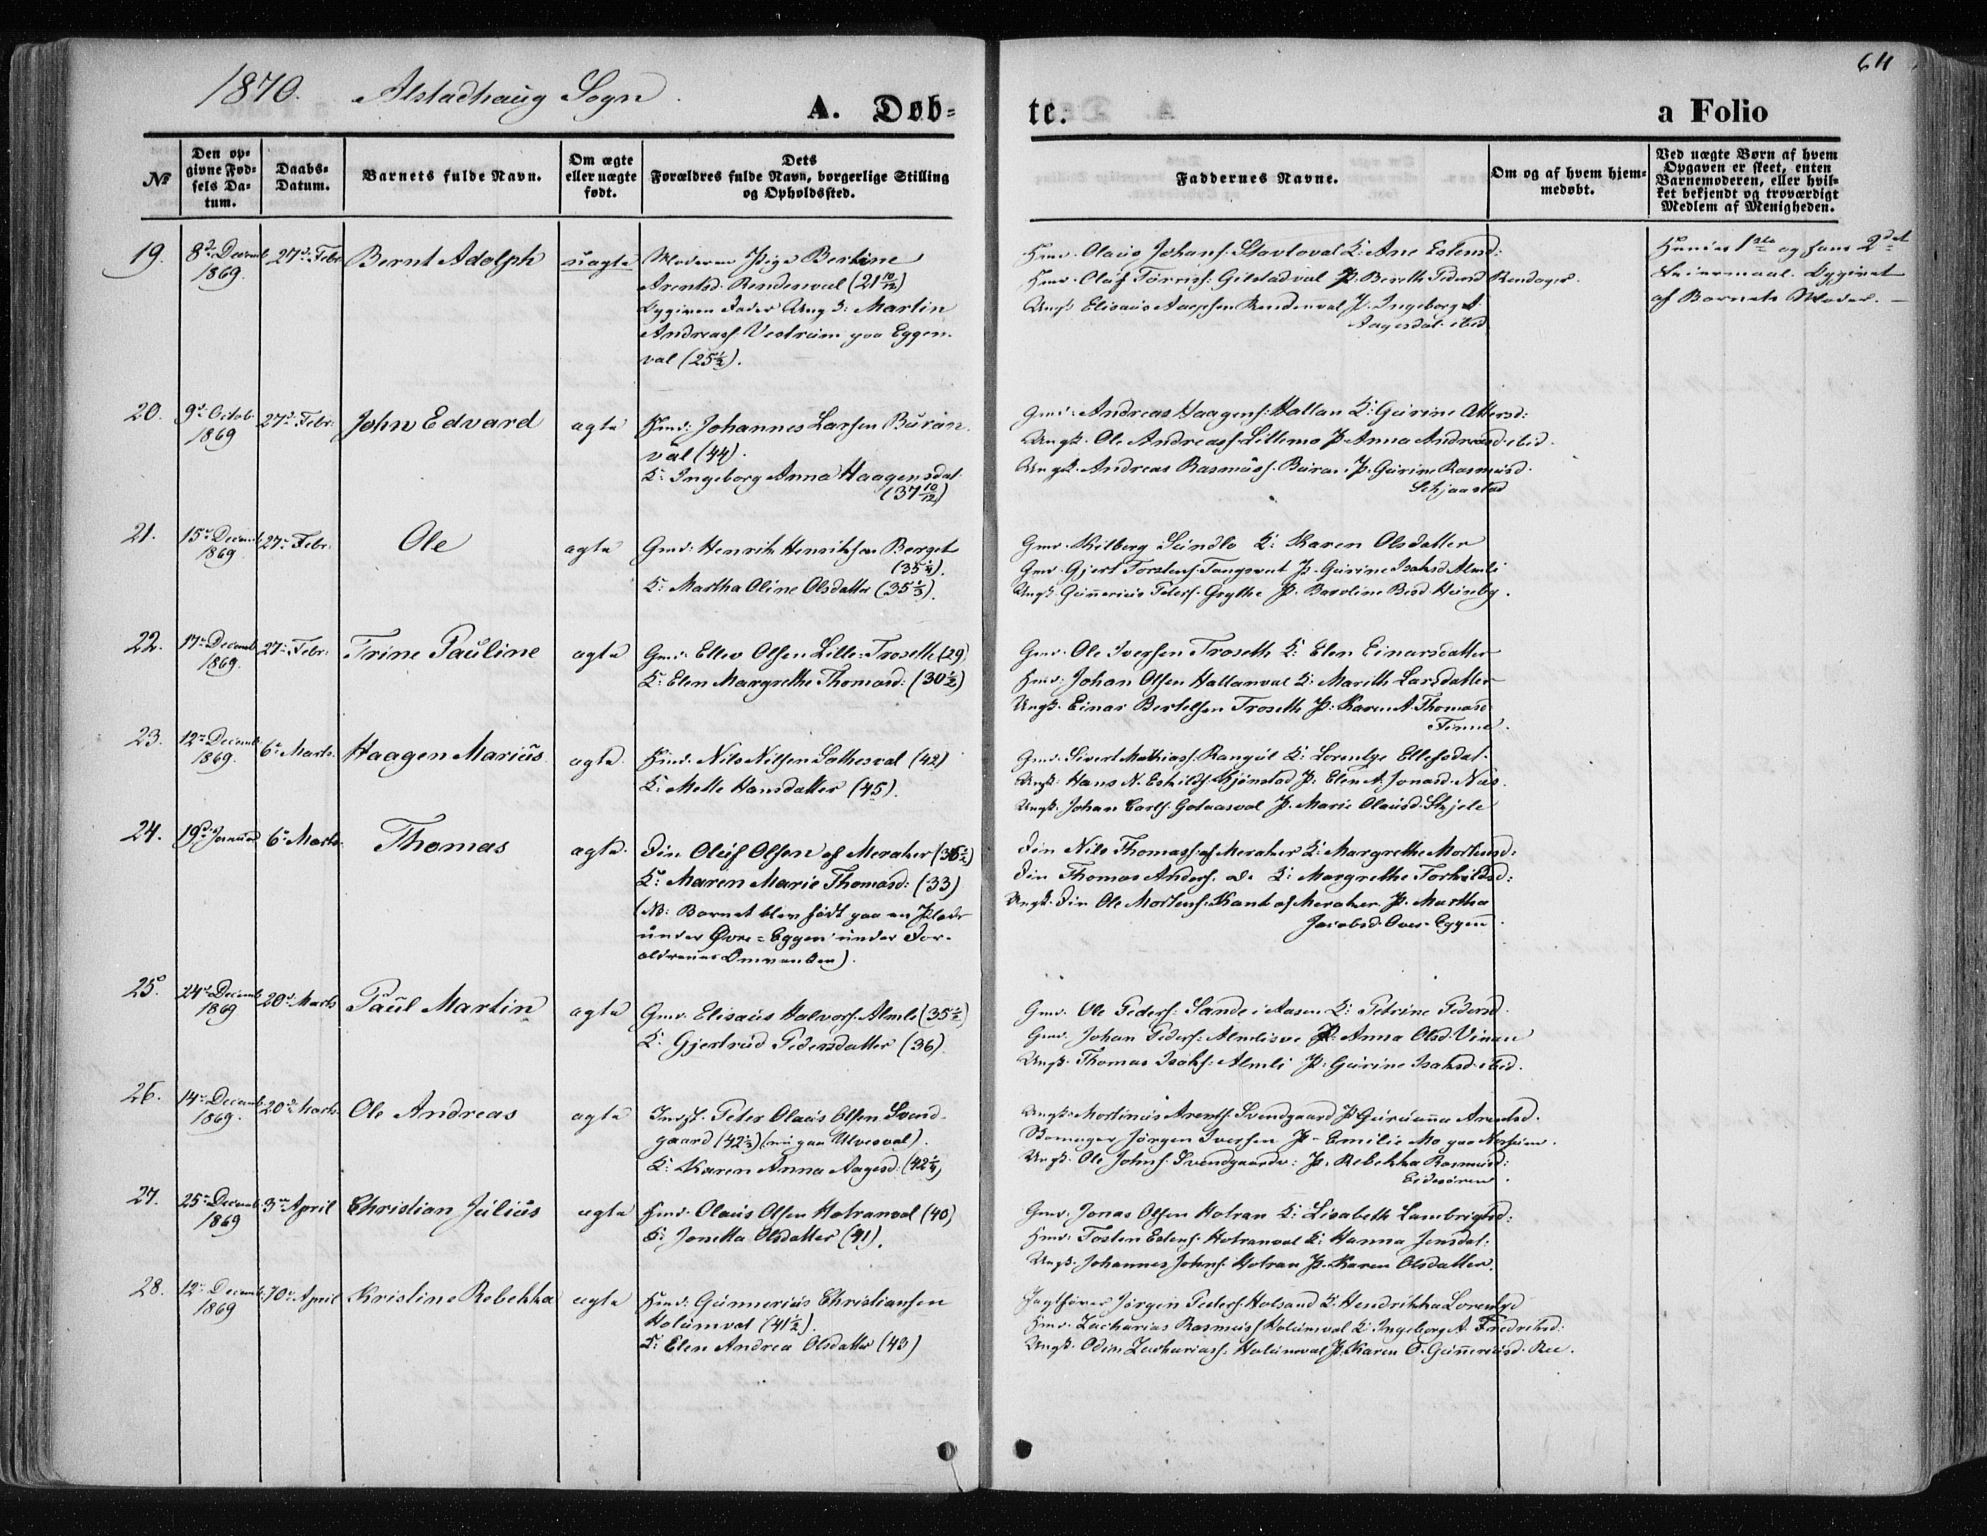 1870. Alstadhaug Sogn.
A. Døb-
te.
a Folio
64
№
Den op-
givne Fød-
sels Da-
tum.
Daabs-
Datum.
Barnets fulde Navn.
Om ægte
eller uægte
født.
Dets
Forældres fulde Navn, borgerlige Stilling
og Opholdssted.
Faddernes Navne.
Om og af hvem hjem-
medøbt.
Ved uægte Børn af hvem
Opgaven er skeet, enten
Barnemoderen, eller hvil-
ket bekjendt og troværdigt
Medlem af Menigheden.
19.
8de Decemb
1869.
27de Febr
Bernt Adolph
uægte
Moderen Pige Bertine
Arentsd: Rendesval (21 10/12)
Opgiven Fader Ung S: Martin
Andreass Vestrum paa Eggen-
val (25½).
Hmd. Olaus Johans: Stavloval K: Ane Estensd:
Hmd. Oluf Torris: Gilstadval P. Bereth Pedersd
Ungk Elisæus Aagesen Rendenval P. Ingeborg A.
Aagesdat. ibid
Hendes 1ste og hans 2det
Leiermaal. Opgivet
af Barnets Moder. —
20.
9de Octob.
1869
27de Febr:
John Edvard
ægte
Hmd: Johannes Larsen Buran-
val (44).
K: Ingeborg Anna Haagensdat.
(37 10/12)
Gmd: Andreas Haagens: Hallan K: Gurine Ottersd:
Ungk. Ole Andreass: Lillemo P. Anna Andreasd. ibid.
Ungk. Andreas Rasmuss. Buran P. Gurine Rasmusd.
Schjaastad
21.
15de Decemb.
1869.
27de Febr.
Ole
ægte
Gmd: Henrik Henriksen Berget
(35¼).
K: Martha Oline Olsdatter (35⅓).
Gmd. Kilberg Sundlo K: Karen Olsdatter
Gmd. Gjert Torstens: Tangsvat P. Gurine Isaksd Almli
Ungk: Gunnerius Peters. Grythe P. Beroline
22.
17de Decemb.
1869.
27de Febr.
Trine Pauline
ægte
Gmd: Ellev Olsen Lille-Troseth (29)
K: Elen Margrethe Thomasd: (30½)
Gmd. Ole Iversen Troseth K: Elen Einarsdatter
Hmd: Johan Olsen Hallanval K: Marith Larsdatter
Ungk. Einar Bertelsen Troseth P: Karen A. Thomasd
Finne.
23.
12te Decemb.
1869.
6te Marts.
Haagen Marius
ægte.
Hmd. Nils Nilsen Lathesval (42)
K: Mette Hansdatter (45).
Gmd. Sivert Mathiass. Rangul K: Lorentze Ellefsdat.
Ungk: Hans N. Eskilds: Kjønstad P: Elen A. Jonasd. Næs.
Ungk. Johan Carls: Gotaasval P. Marie Olausd. Skjele
24.
19de Januar
6te Marts.
Thomas
ægte.
Fin Oluf Olsen af Meraker (36½)
K: Maren Marie Thomasd: (33)
(NB: Barnet blev født paa en Plads
under Øvre-Eggen under For-
ældrenes Omvanken).
Fin Nils Thomass af Meraker K: Margrethe Mortensd.
Fin Thomas Anders: ds K: Margrethe Torkildsd:
Ungk. Fin Ole Mortens: Kant af Meraker P. Martha
Jacobsd Over-Eggen.
25.
24de Decemb
1869
20de Marts
Paul Martin
ægte
Gmd. Elisæus Halvors. Almli (35½)
K: Gjertrud Pedersdatter (36).
Gmd. Ole Peders: Sande i Aasen K: Petrine Pedersd.
Gmd. Johan Peders: Almlisve P: Anna Olsd. Vinan
Ungk. Thomas Isaks: Almli P: Gurine Isaksd. ibid.
26.
14de Decemb
1869.
20de Marts
Ole Andreas
ægte
Indst. Peter Olaus Olsen Svend-
gaard (42⅓) (nu paa Ulvesval).
K: Karen Anna Aagesd: (42¼)
Ungk: Mortinus Arents: Svendgaard P. Gurianna Arentsd.
Bomager Jørgen Iversen P. Emilie Mo paa Norheim.
Ungk. Ole Johns: Svendgaardv: P. Rebekka Rasmusd:
Eidsøren.
27.
25de Decemb
1869
3die April
Christian Julius
ægte
Hmd. Olaus Olsen Hotranval (40)
K: Jonetta Olsdatter (41).
Gmd. Jonas Olsen Hotran K: Lisabeth Lambrigtsd:
Hmd: Tosten Estens: Hotranval K: Hanna Jensdat:
Ungk. Johannes Johns: Hotran P. Karen Olsdatter.
28.
12te Decemb.
1869
10de April
Kristine Rebekka
ægte
Hmd. Gunnerius Christiansen
Holumval (41½).
K: Elen Andrea Olsdatter (43)
Jagtfører Jørgen Peders: Holsand K: Hendrikka Lorentsd
Hmd. Zacharias Rasmuss Holumsval K: Ingeborg A. Fredriksd:
Ungk. Odin Zachariass. Holumval P. Karen O. Gunneriusd. Ree.